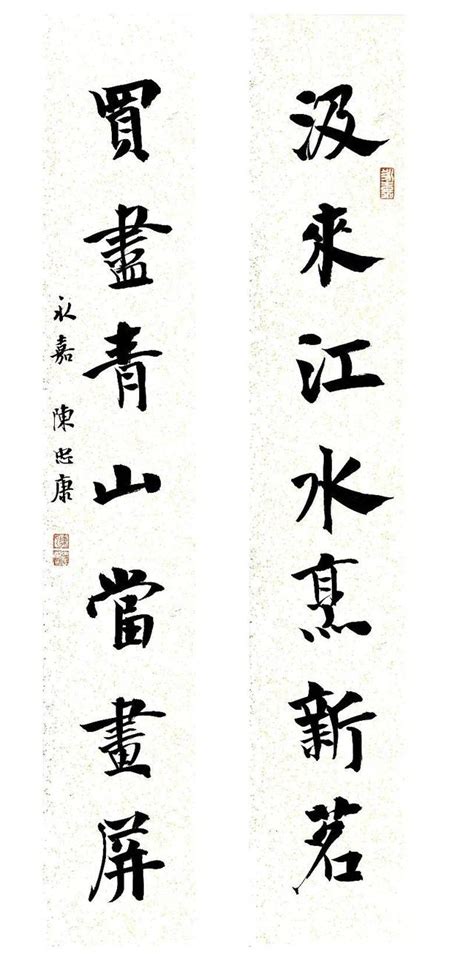 汲來江水烹新茗
買盡青山當畫屏
永嘉 陳忠康